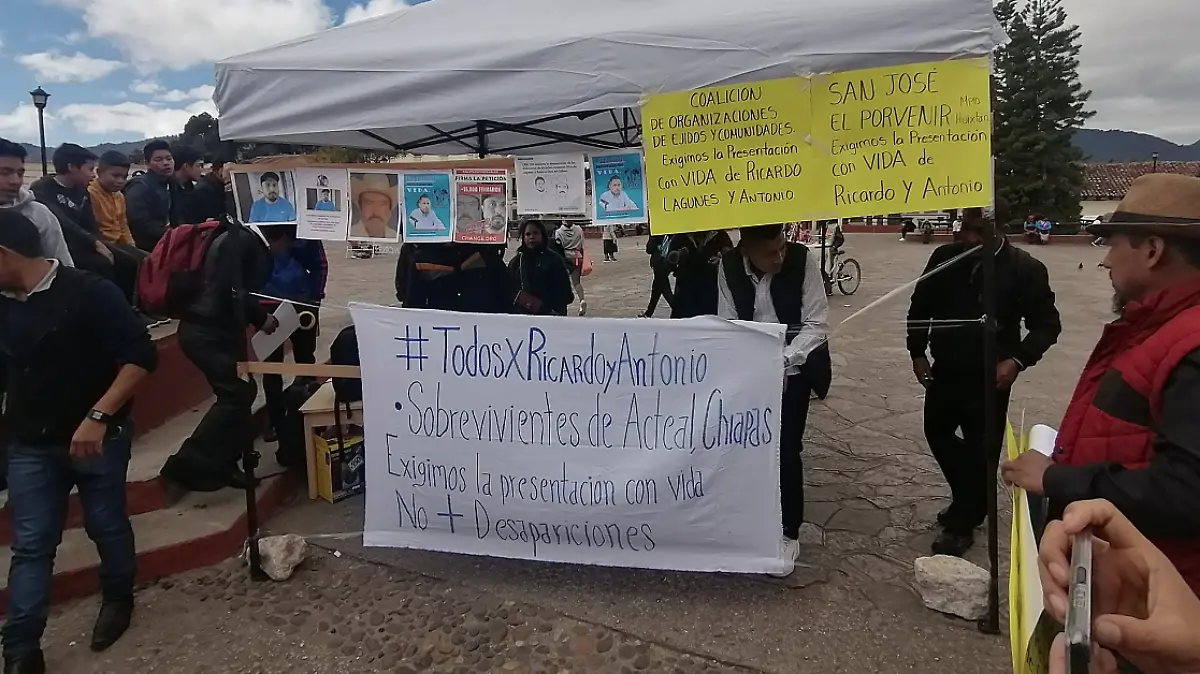 COALICION
DE ORGANIZACIONES
DE EJIDOS Y COMUNIDADES.
Exigimos la Presentación
Con VIDA de RICARDO
LAGUNES Y ANTONIO
SAN JOSÉ
EL PORVENIR MPIO
Huixtan
Exigimos la Presentación
con VIDA de
Ricardo Y Antonio
VIDA
FIRMA LA PETICIÓN
CHANGE.ORG
VIDA
#TodosXRicardoyAntonio
• Sobrevivientes de Acteal, Chiapas
Exigimos la presentacion con vida
No + Desapariciones